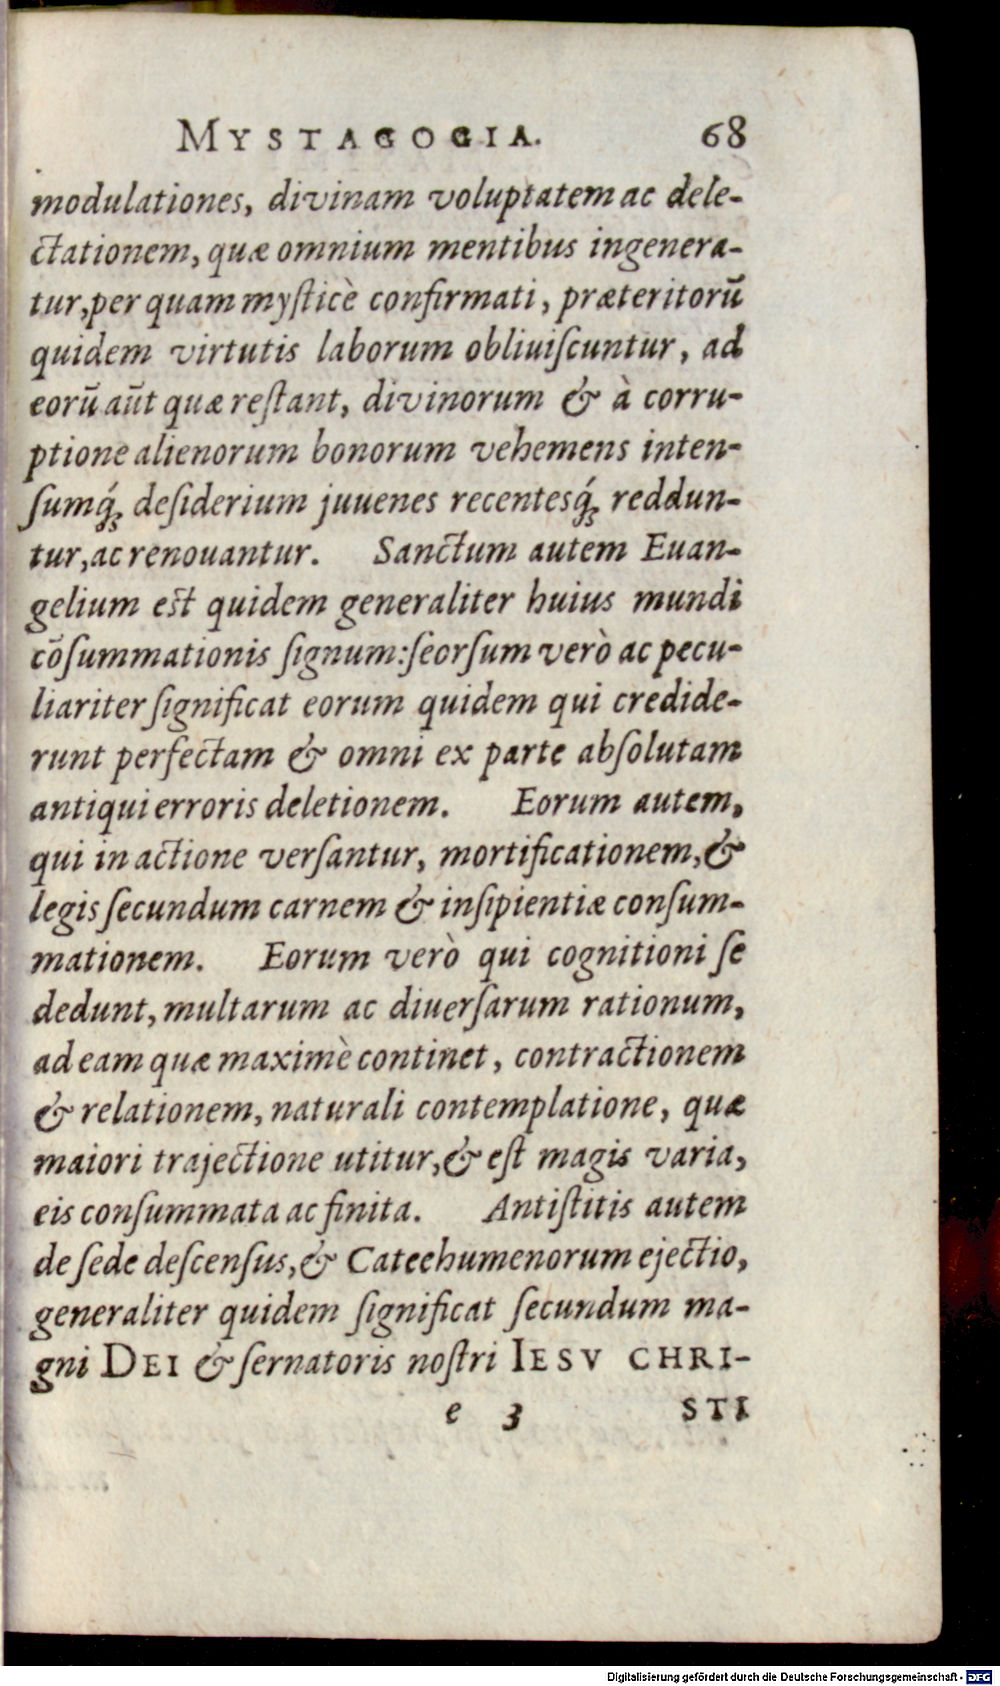 MYSTAGOGIA. 68
modulationes, divinam voluptatem ac dele-
ctationem, quæ omnium mentibus ingenera-
tur, per quam mysticè confirmati, præteritorū
quidem virtutis laborum obliuiscuntur, ad
eorū aūt quæ restant, divinorum & à corru-
ptione alienorum bonorum vehemens inten-
sumq́ꝫ desiderium juuenes recentesq́ꝫ reddun-
tur, ac renouantur. Sanctum autem Euan-
gelium est quidem generaliter huius mundi
cōsummationis signum: seorsum verò ac pecu-
liariter significat eorum quidem qui credide-
runt perfectam & omni ex parte absolutam
antiqui erroris deletionem. Eorum autem,
qui in actione versantur, mortificationem, &
legis secundum carnem & insipientiæ consum-
mationem. Eorum verò qui cognitioni se
dedunt, multarum ac diuersarum rationum,
ad eam quæ maximè continet, contractionem
& relationem, naturali contemplatione, quæ
maiori trajectione utitur, & est magis varia,
eis consummata ac finita. Antistitis autem
de sede descensus, & Catechumenorum ejectio,
generaliter quidem significat secundum ma-
gni DEI & sernatoris nostri IESV CHRI-
e 3 STI
Digitalisierung gefördert durch die Deutsche Forschungsgemeinschaft - DFG